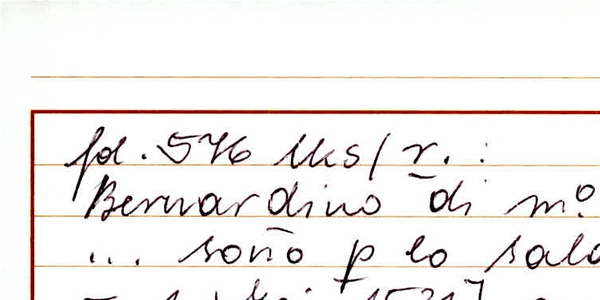 fol. 576 lks/r. :
Bernardino di mº
... soño p lo sala